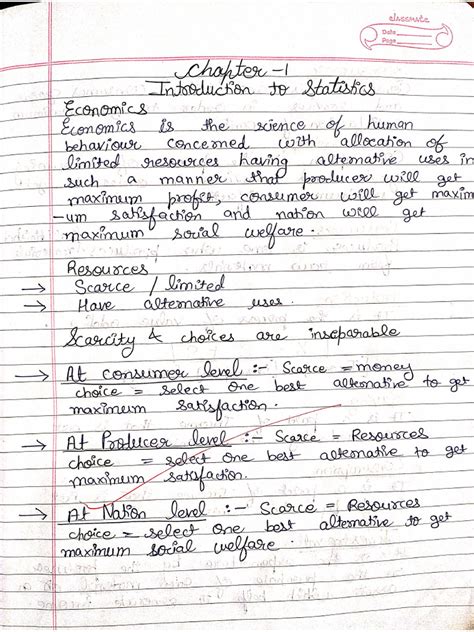 classmate
Date
Page
Chapter-1
Introduction to Statistics
Economics
Economics is the science of human
behaviour concerned with allocation of
limited resources having alternative uses in
such a manner that producer will get
maximum profit, consumer will get maxim
-um satisfaction and nation will get
maximum social welfare.
Resources
→ Scarce / limited
→ Have alternative uses.
Scarcity & choices are inseparable
→ At consumer level :- Scarce = money
choice = select one best alternative to get
maximum satisfaction.
→ At Producer level :- Scarce = Resources
choice = select one best alternative to get
maximum satisfaction.
→ At Nation level :- Scarce = Resources
choice = select one best alternative to get
maximum social welfare.